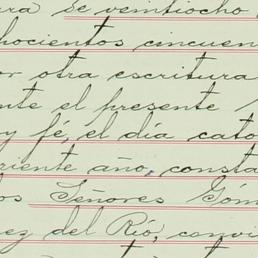 ra se veintiocho
hocientos cincuen
or otra escritura
nte el presente
y fé, el día cato
riente año, consta
os Señores Góm
ez del Río, convi